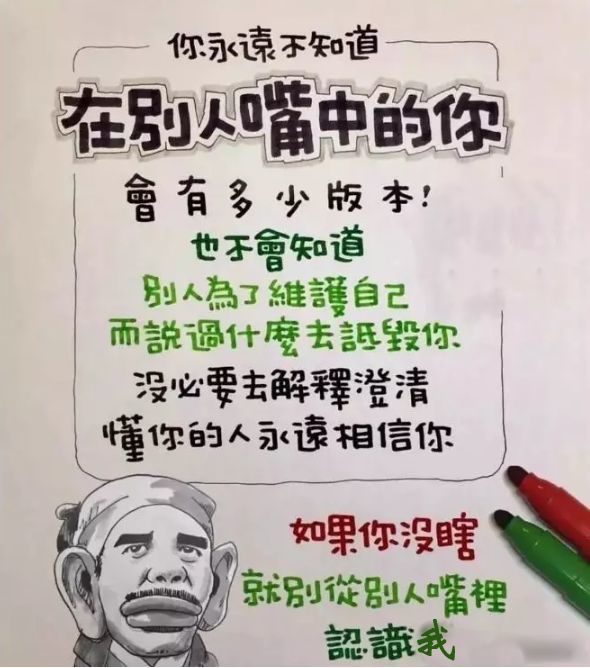 你永遠不知道
在別人嘴中的你
會有多少版本!
也不會知道
別人為了維護自己
而説過什麼去詆毀你
沒必要去解釋澄清
懂你的人永遠相信你
如果你沒瞎
就別從別人嘴裡
認識我